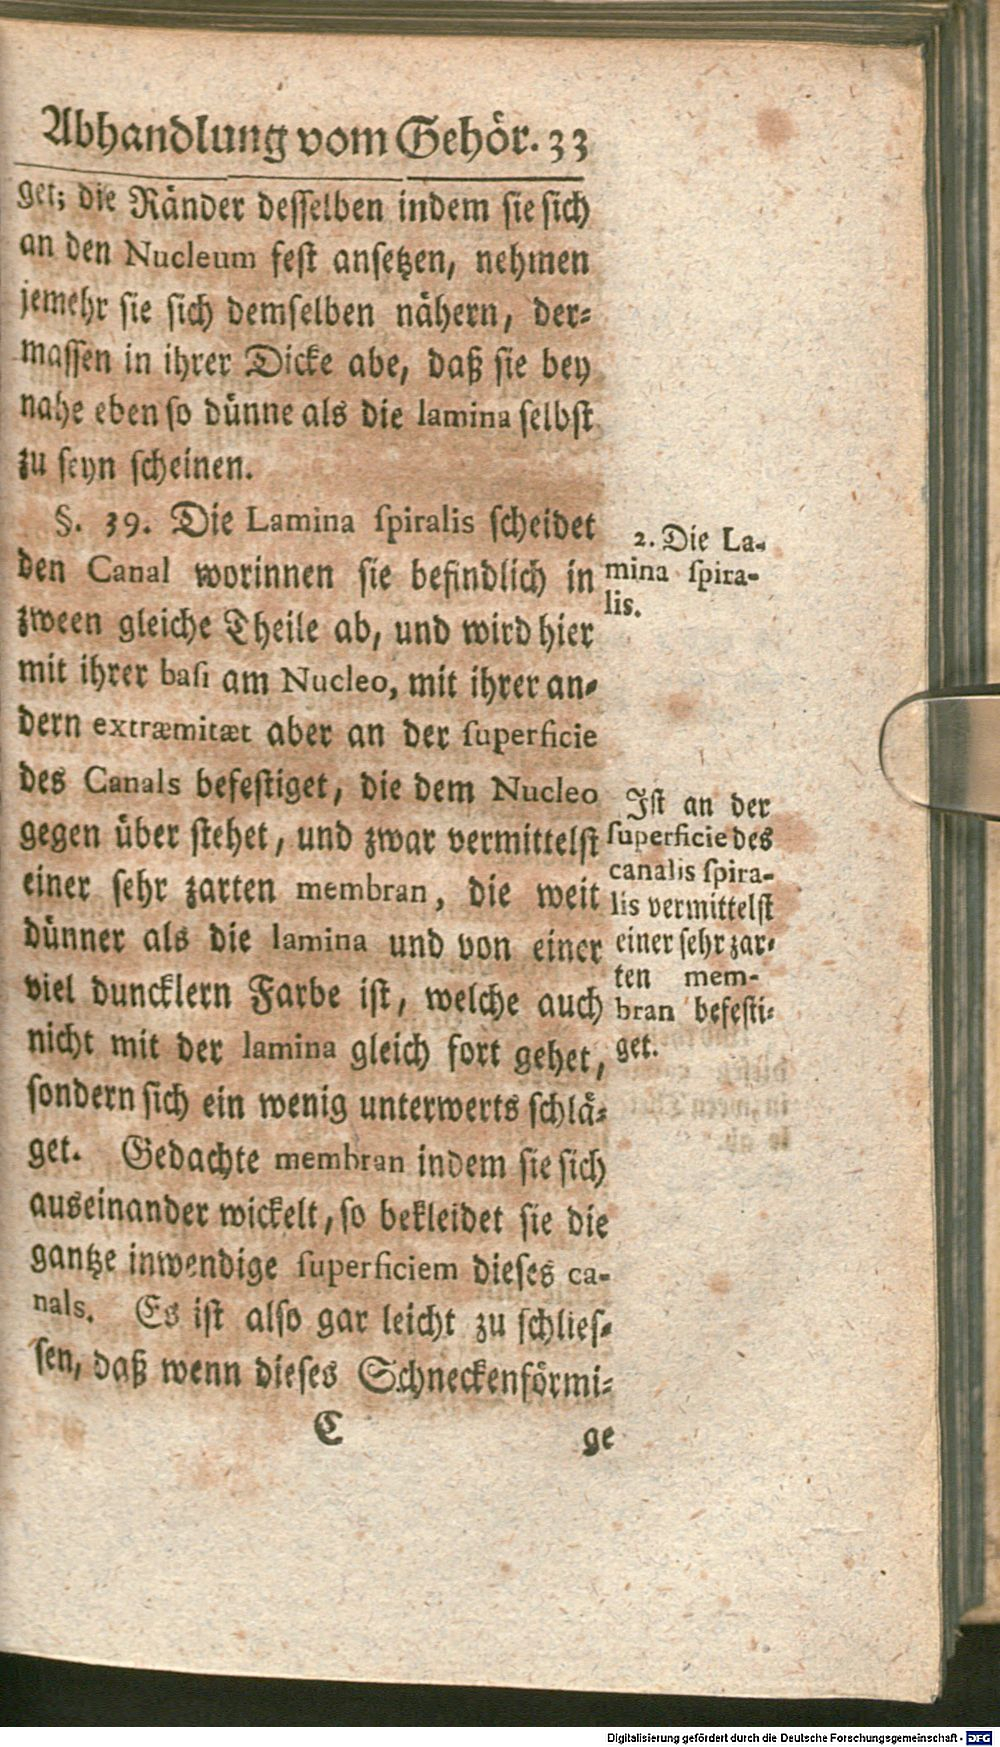 Abhandlung vom Gehör. 33
get; die Ränder desselben indem sie sich
an den Nucleum fest ansetzen, nehmen
jemehr sie sich demselben nähern, der-
massen in ihrer Dicke abe, daß sie bey
nahe eben so dünne als die lamina selbst
zu seyn scheinen.
§. 39. Die Lamina spiralis scheidet
den Canal worinnen sie befindlich in
zween gleiche Theile ab, und wird hier
mit ihrer basi am Nucleo, mit ihrer an-
dern extræmitæt aber an der superficie
des Canals befestiget, die dem Nucleo
gegen über stehet, und zwar vermittelst
einer sehr zarten membran, die weit
dünner als die lamina und von einer
viel duncklern Farbe ist, welche auch
nicht mit der lamina gleich fort gehet,
sondern sich ein wenig unterwerts schlä-
get. Gedachte membran indem sie sich
auseinander wickelt, so bekleidet sie die
gantze inwendige superficiem dieses ca-
nals. Es ist also gar leicht zu schlies-
sen, daß wenn dieses Schneckenförmi-
C ge
2. Die La-
mina spira-
lis.
Ist an der
superficie des
canalis spira-
lis vermittelst
einer sehr zar-
ten mem-
bran befesti-
get.
Digitalisierung gefördert durch die Deutsche Forschungsgemeinschaft - DFG